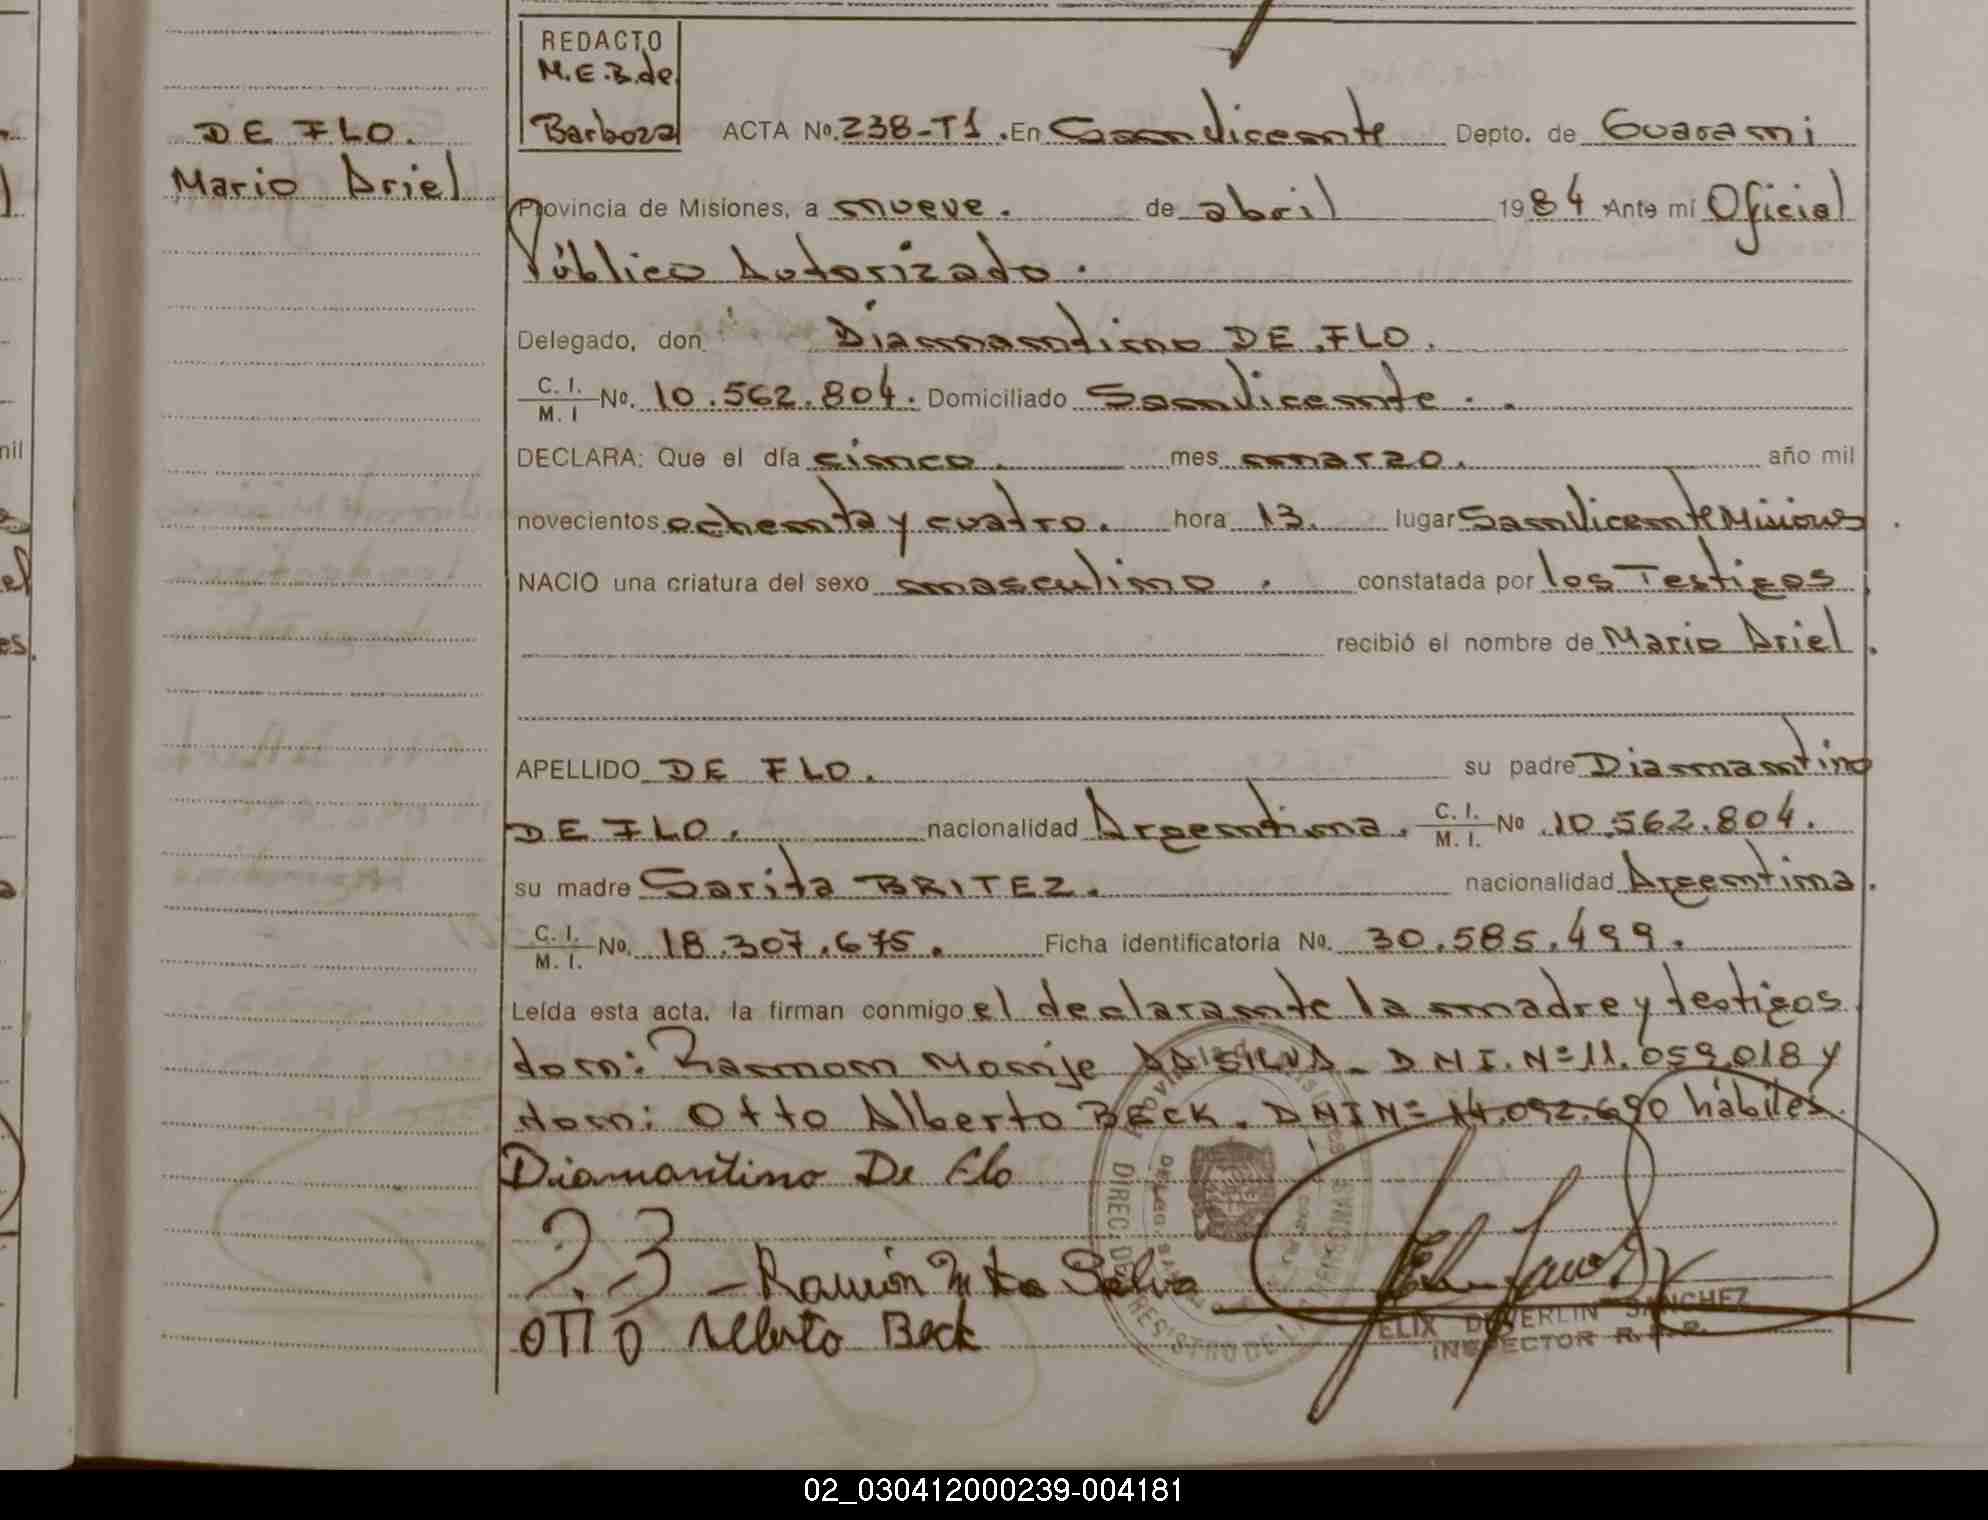 REDACTO
M.E.B.de
Barboza
DE FLO.
Mario Ariel
ACTA No. 238-T1. En San Vicente Depto. de Guarani
Provincia de Misiones, a nueve. de abril 1984 Ante mi Oficial
Público Autorizado.
Delegado, don Diamantino DE FLO.
C. I. / M. I No. 10.562.804. Domiciliado San Vicente.
DECLARA: Que el día cinco. mes marzo. año mil
novecientos ochenta y cuatro. hora 13. lugar San Vicente Misiones
NACIO una criatura del sexo masculino. constatada por los Testigos
recibió el nombre de Mario Ariel.
APELLIDO DE FLO. su padre Diamantino
DE FLO. nacionalidad Argentina. C. I. / M. I. No 10.562.804.
su madre Sarita BRITEZ. nacionalidad Argentina.
C. I. / M. I. No. 18.307.675. Ficha identificatoria No. 30.585.499.
Leída esta acta, la firman conmigo el declarante la madre y testigos
don: Ramon DA SILVA. DNI. Nº 11.059.018 y
don: Otto Alberto BECK. DNI Nº 14.092.690 hábiles.
Diamantino De Flo
Ramón Da Silva
OTTO Alberto Beck
FELIX DUVERLIN SANCHEZ
INSPECTOR R.P.P.
02_030412000239-004181